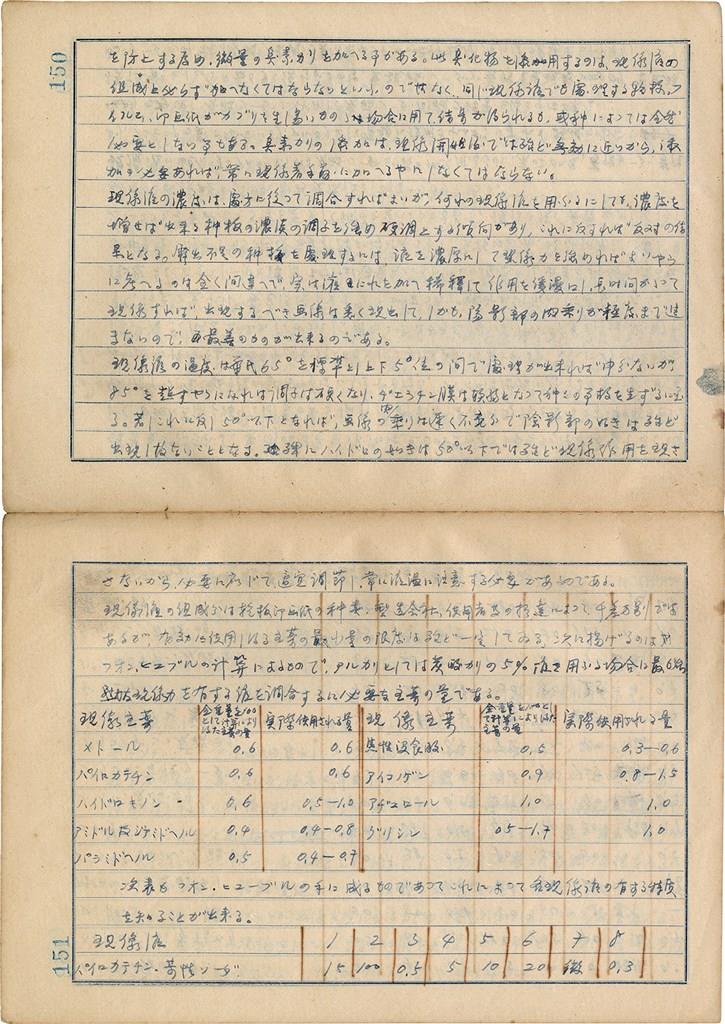 150
を防止する為め、微量の臭素カリを加へる事がある。此臭化物を添加するのは、現像液の
組成上必らず加へなくてはならないといふのではなく、同じ現像液でも処理する乾板、フ
イルム、印画紙がカブリを生じ易いものゝ場合に用て結果が得られるも、或種によつては全然
必要としない事もある。臭素カリの添加は、現像開始後では殆ど無効に近いから、添
加の必要あれば、常に現像着手前に加へる様にしなくてはならない。
現像液の濃度は、処方に従つて調合すればよいが、何れの現像液を用ふるにしても、濃度を
増せば出来る種板の濃淡の調子を強め硬調とする傾向があり、これに反すれば反対の結
果となる。露出不足の種板を処理するには、液を濃厚にして現像力を強めればよいやう
に考へるのは全く間違で、実は液に水を加へ稀釈して作用を緩漫にし、長時間かゝつて
現像すれば、出現するべき画像は悉く現出して、しかも、陰影部の肉乗りが極度まで進
まないので、最善のものが出来るのである。
現像液の温度は華氏65°を標準とし上下5°位の間で処理が出来れば申分ないが
85°を越すやうになれば調子は硬くなり、ゼラチン膜は軟弱となつて種々の予板を生ずるに至
る。若しこれに反し50°以下となれば、画像の肉乗りは遅く不充分で陰影部の如きは殆ど
出現し放ないこととなる。殊にハイドロの如きは50°以下では殆ど現像作用を現さ
さないから、必要に応じて適宜調節し、常に液温に注意する必要があるのである。
現像液の組成分は乾板印画紙の種類、製造会社、使用者等の相違によつて千差万別ではあ
あるが、有効に使用し得る主薬の最少量の限度は殆ど一定してゐる、次に掲げるのは
フオン、ヒユーブルの計算によるもので、アルカリとしては炭酸カリの5%液を用ふる場合に最も
現像力を有する液を調合するに必要な主薬の量である。
現像主薬 全容量を100として計算により得た主薬の量 実際使用される量 現像主薬 全容量を100として計算により得た主薬の量 実際使用される量
メトール 0.6 0.6 焦性没食酸 0.5 0.3-0.6
パイロカテチン 0.6 0.6 アイコノゲン 0.9 0.8-1.5
ハイドロキノン 0.6 0.5-1.0 アヂユロール 1.0 1.0
アミドル及ヂアミドヘノル 0.4 0.4-0.8 グリシン 0.5-1.7 1.0
パラミドヘノル 0.5 0.4-0.7
次表もフオン、ヒユーブルの手に成るものであつてこれによつて各現像液の有する特質
を知ることが出来る。
現像液 1 2 3 4 5 6 7 8
パイロカテチン、苛性ソーダ 15 100 0.5 5 10 20 微 0.3
151